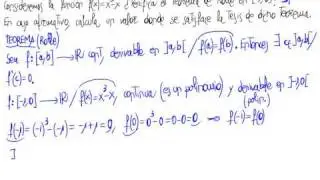 Consideremos la función f(x)=x³-x ¿Verifica el teorema de Rolle en [-1,0]?
En caso afirmativo, calcula un valor donde se satisface la tesis de dicho teorema.
TEOREMA (Rolle)
Sea f:[a,b] → ℝ cont, derivable en ]a,b[ / f(a)=f(b). Entonces ∃ c∈]a,b[ /
f'(c)=0.
f:[-1,0] → ℝ / f(x)=x³-x, continua (es un polinomio) y derivable en ]-1,0[
(polin.)
f(-1)=(-1)³-(-1)=-1+1=0, f(0)=0³-0=0-0=0, ⇒ f(-1)=f(0)
∃